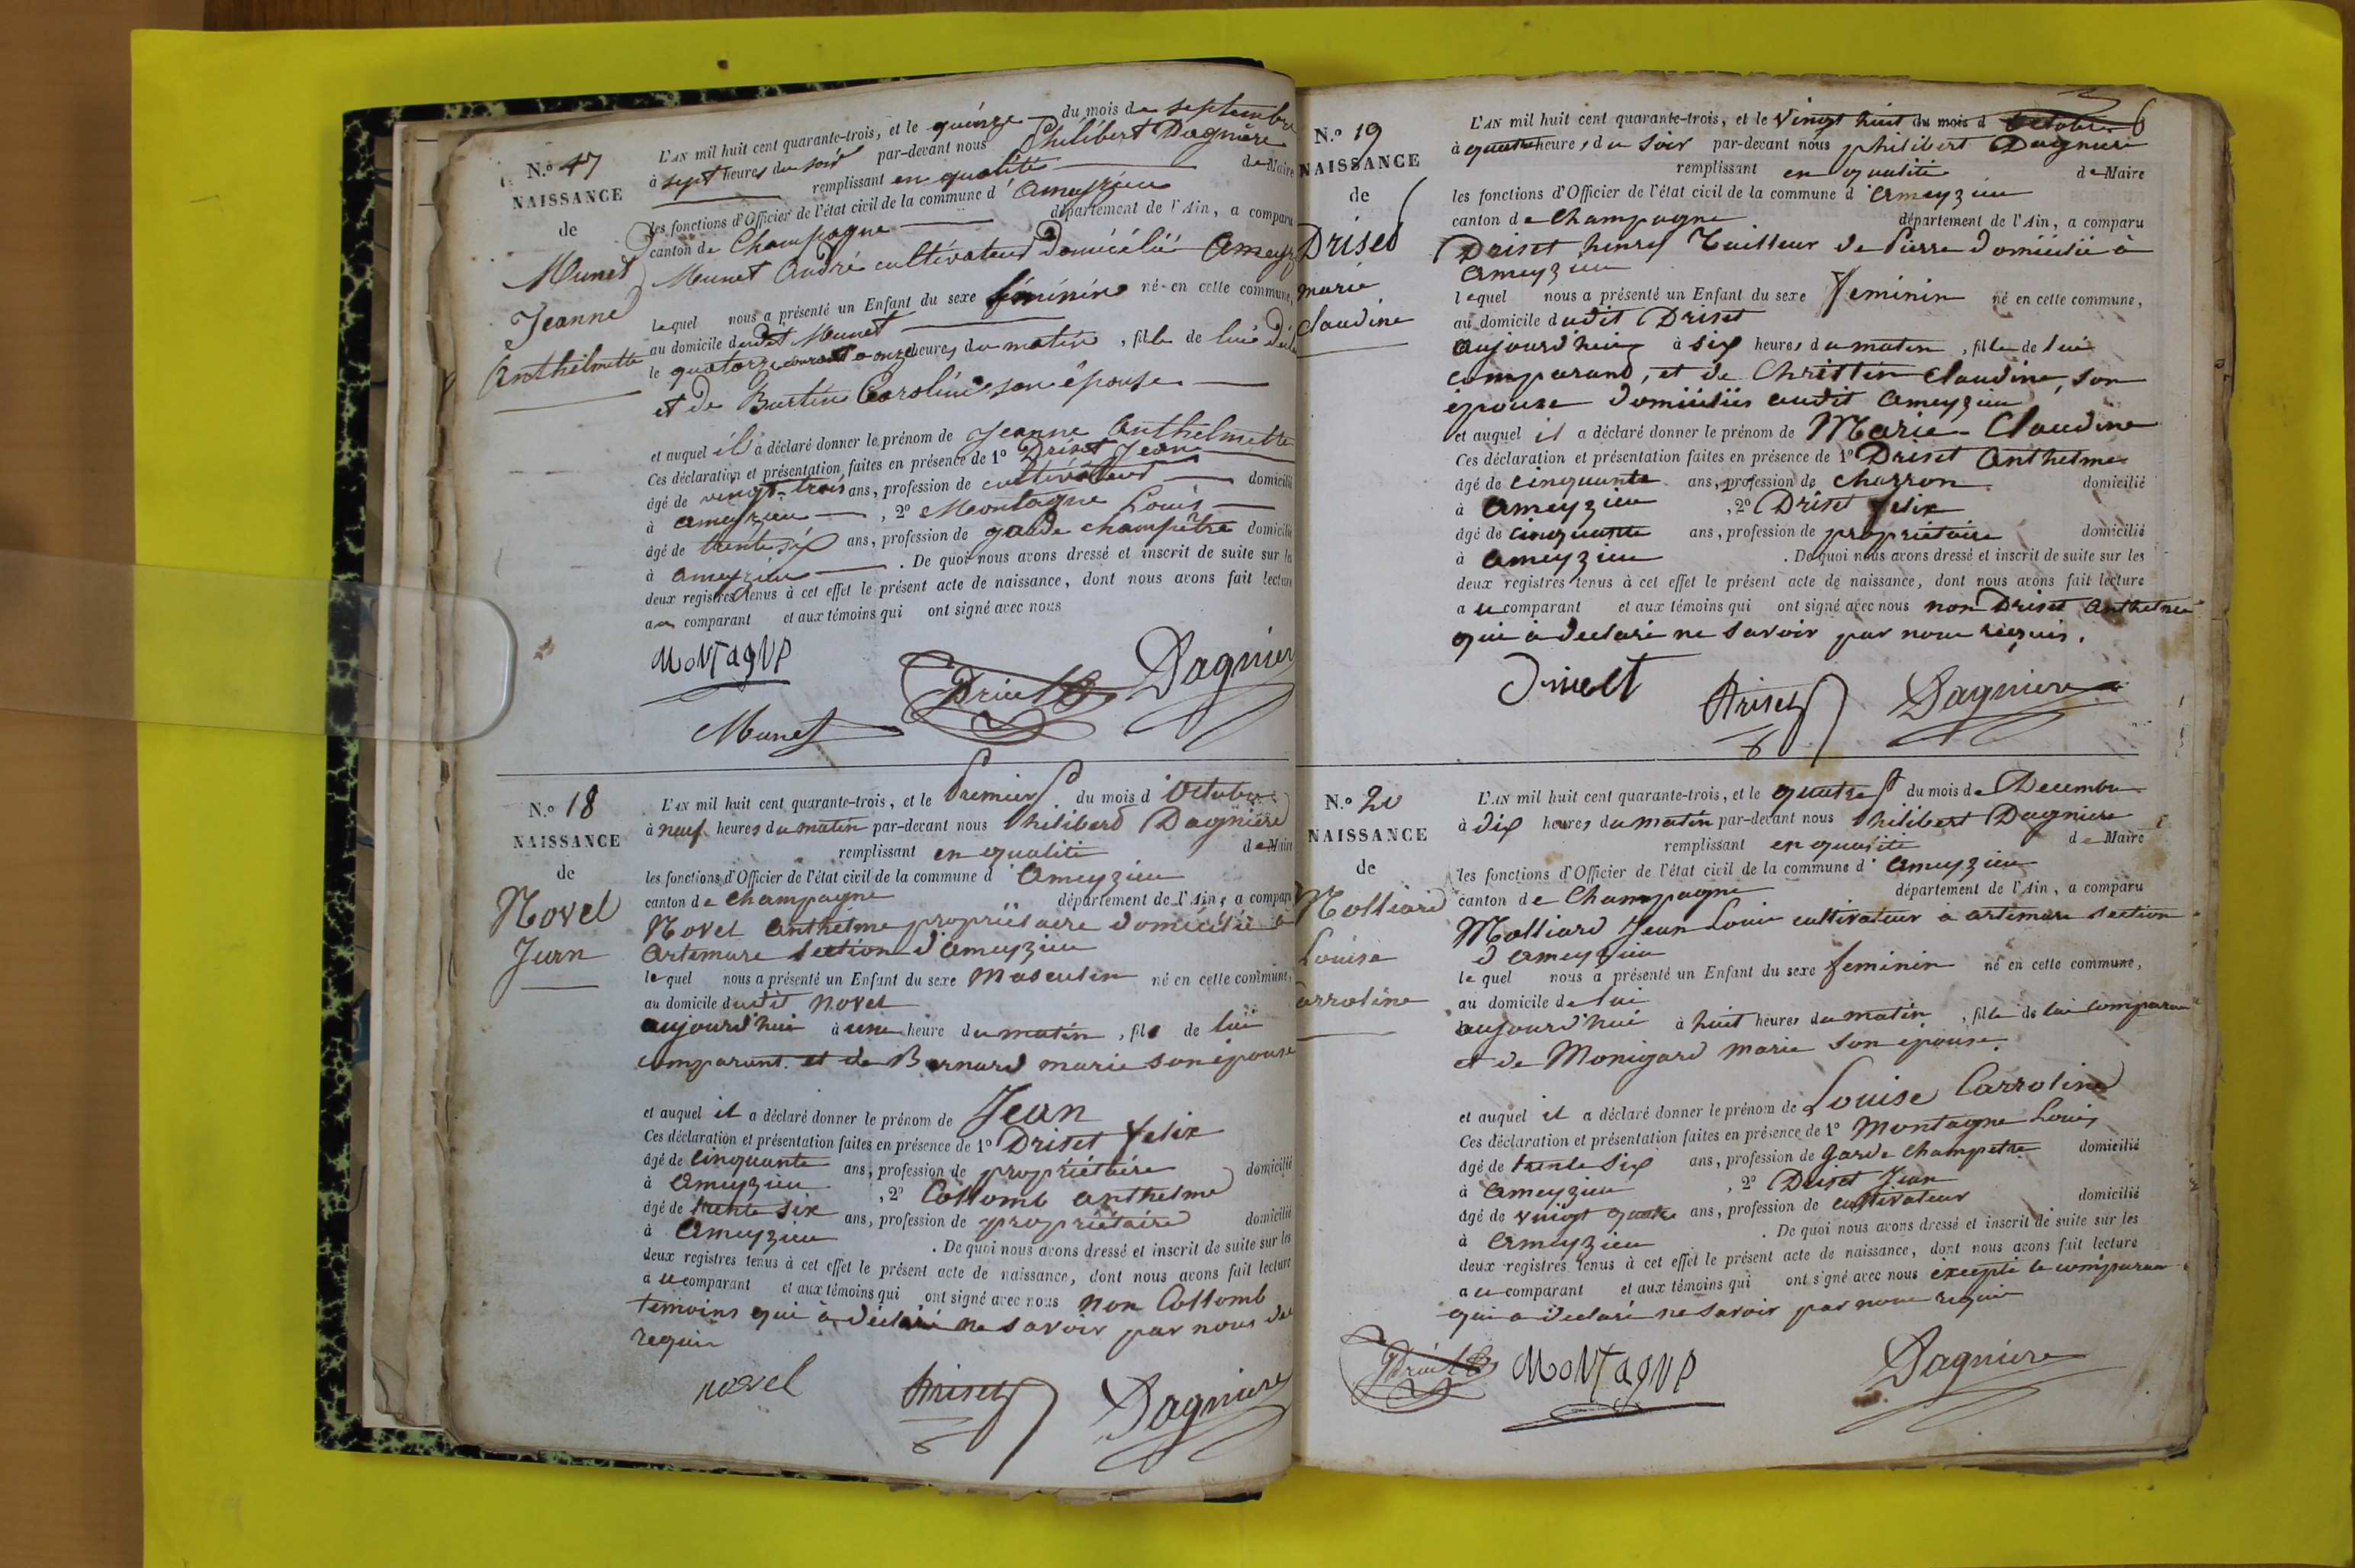 N.º 17
NAISSANCE
de
Munet
Jeanne
Anthelmette
L'AN mil huit cent quarante-trois, et le quinze du mois de septembre
à sept heures du soir par-devant nous Philibert Dagnière
remplissant en qualité de Maire
les fonctions d'Officier de l'état civil de la commune d'Ameyzieu
canton de Champagne département de l'Ain, a comparu
Munet André cultivateur domicilié Ameyz
lequel nous a présenté un Enfant du sexe féminin né en cette commune,
au domicile dudit Munet
le quatorze courant à onze heures du matin, fille de lui
et de Burtin Caroline son épouse
et auquel il a déclaré donner le prénom de Jeanne Anthelmette
Ces déclaration et présentation faites en présence de 1º Driset Jean
âgé de vingt-trois ans, profession de cultivateur domicilié
à ameyzieu, 2º Montagne Louis
âgé de trente six ans, profession de garde champêtre domicilié
à ameyzieu. De quoi nous avons dressé et inscrit de suite sur les
deux registres tenus à cet effet le présent acte de naissance, dont nous avons fait lecture
au comparant et aux témoins qui ont signé avec nous
MoNTagNe
Driset Dagnier
Munet
N.º 18
NAISSANCE
de
Novel
Jean
L'AN mil huit cent quarante-trois, et le Premier du mois d'Octobre
à neuf heures du matin par-devant nous Philiberd Dagnière
remplissant en qualité de Maire
les fonctions d'Officier de l'état civil de la commune d'Ameyzieu
canton de Champagne département de l'Ain, a comparu
Novel Anthelme propriétaire domicilié à
Artemare section d'ameyzieu
lequel nous a présenté un Enfant du sexe Masculin né en cette commune,
au domicile dudit Novel
aujourd'hui à une heure du matin, fils de lui
comparant et de Bernard marie son épouse
et auquel il a déclaré donner le prénom de Jean
Ces déclaration et présentation faites en présence de 1º Driset felix
âgé de Cinquante ans, profession de propriétaire domicilié
à Ameyzieu, 2º Collomb anthelme
âgé de trente six ans, profession de propriétaire domicilié
à Ameyzieu. De quoi nous avons dressé et inscrit de suite sur les
deux registres tenus à cet effet le présent acte de naissance, dont nous avons fait lecture
au comparant et aux témoins qui ont signé avec nous non Collomb
temoins qui à déclaré ne savoir par nous de
requis
novel Driset Dagniere
N.º 19
NAISSANCE
de
Drised
marie
Claudine
L'AN mil huit cent quarante-trois, et le vingt huit du mois d octobre
à quatre heures du soir par-devant nous philibert Dagniere
remplissant en qualité de Maire
les fonctions d'Officier de l'état civil de la commune d'Ameyzieu
canton de Champagne département de l'Ain, a comparu
Driset henry Tailleur de Pierre domicilié à
Ameyzieu
lequel nous a présenté un Enfant du sexe feminin né en cette commune,
au domicile dudit Driset
aujourd'hui à six heures du matin, fille de lui
comparand, et de Christin Claudine, son
épouse domiciliés audit Ameyzieu
et auquel il a déclaré donner le prénom de Marie-Claudine
Ces déclaration et présentation faites en présence de 1º Driset Anthelme
âgé de Cinquante ans, profession de charron domicilié
à Ameyzieu, 2º Driset felix
âgé de Cinquante ans, profession de propriétaire domicilié
à Ameyzieu. De quoi nous avons dressé et inscrit de suite sur les
deux registres tenus à cet effet le présent acte de naissance, dont nous avons fait lecture
au comparant et aux témoins qui ont signé avec nous non Driset Anthelme
qui à declaré ne savoir par nous requis.
Driset Dagniere
N.º 20
NAISSANCE
de
Molliard
Louise
Carroline
L'AN mil huit cent quarante-trois, et le quatre du mois de Decembre
à dix heures du matin par-devant nous Philibert Dagniere
remplissant en qualité de Maire
les fonctions d'Officier de l'état civil de la commune d'Ameyzieu
canton de Champagne département de l'Ain, a comparu
Molliard Jean Louis cultivateur à artemare section
d'ameyzieu
lequel nous a présenté un Enfant du sexe feminin né en cette commune,
au domicile de lui
aujourd'hui à huit heures du matin, fille de lui comparant
et de Monigard Marie son épouse
et auquel il a déclaré donner le prénom de Louise Carroline
Ces déclaration et présentation faites en présence de 1º Montagne Louis
âgé de trente six ans, profession de Garde Champetre domicilié
à Ameyzieu, 2º Driset Jean
âgé de vingt quatre ans, profession de cultivateur domicilié
à Ameyzieu. De quoi nous avons dressé et inscrit de suite sur les
deux registres tenus à cet effet le présent acte de naissance, dont nous avons fait lecture
au comparant et aux témoins qui ont signé avec nous excepté le comparant
qui a declaré ne savoir par nous requis
Driset MoNTagNe Dagniere